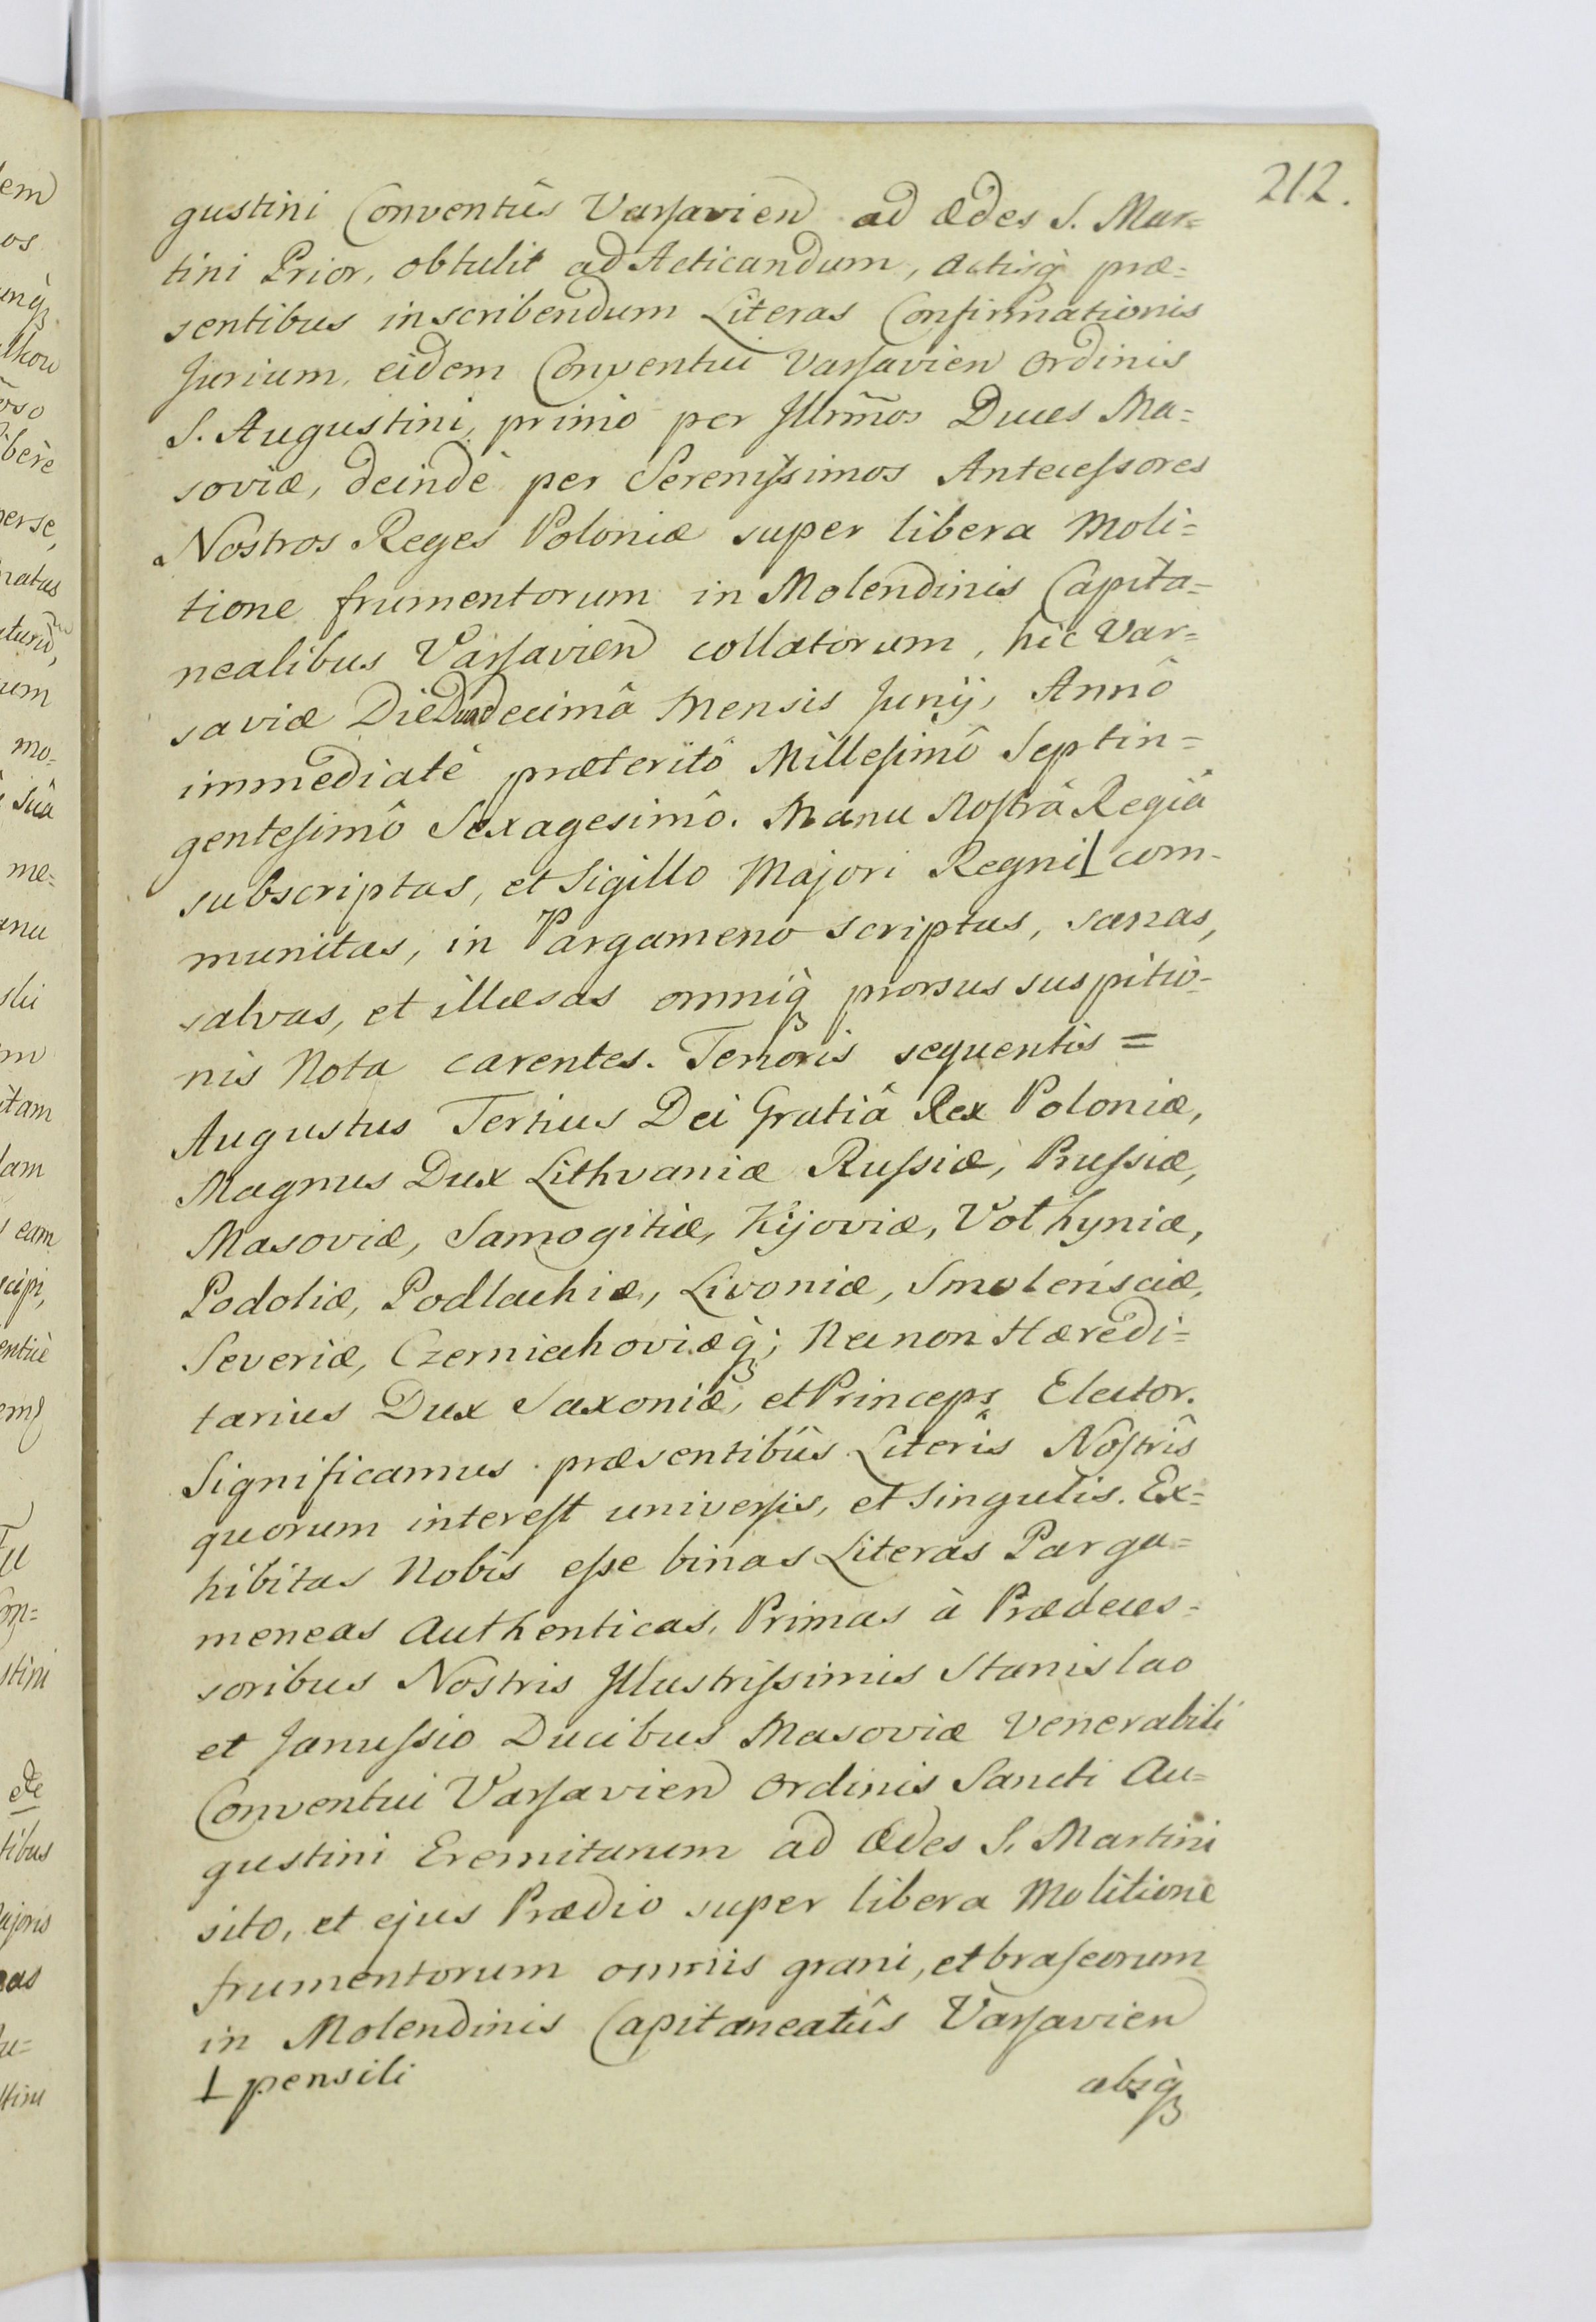 212.
gustini Conventûs Varsavien ad Ædes S. Mar=
tini Prior, obtulit ad Acticandum, actisq́ præ=
sentibus inscribendum Literas Confirmationis
Jurium, eidem Conventui Varsavien Ordinis
S. Augustini, primo per Jllrm̃os Duces Ma=
soviæ, deindè per Serenissimos Antecessores
Nostros Reges Poloniæ super libera Moli=
tione frumentorum in Molendinis Capita=
nealibus Varsavien collatorum, hic Var=
saviæ Die Duodecimâ Mensis Junij, Annô
immediatè præteritô Millesimô Septin=
gentesimô Sexagesimô. Manu Nostrâ Regiâ
subscriptas, et Sigillo Majori Regni ⊥ com-
munitas, in Pargameno scriptas, sanas,
salvas, et illæsas omniq́ prorsus suspitio-
nis Nota carentes. Tenoris sequentis =
Augustus Tertius Dei Gratiâ Rex Poloniæ,
Magnus Dux Lithvaniæ Russiæ, Prussiæ,
Masoviæ, Samogitiæ, Kijoviæ, Volhyniæ,
Podoliæ, Podlachiæ, Livoniæ, Smolensciæ,
Severiæ, Czerniechoviæq́; Necnon Hæredi=
tarius Dux Saxoniæ, et Princeps Elector.
Significamus præsentibûs Literîs Nostrîs
quorum interest universis, et Singulis. Ex=
hibitas Nobis esse binas Literas Parga=
meneas Authenticas, Primas à Prædeces=
soribus Nostris Jllustrissimis Stanislao
et Janussio Ducibus Masoviæ Venerabili
Conventui Varsavien Ordinis Sancti Au=
gustini Eremitarum ad Ædes S. Martini
sito, et ejus Prædio super libera Molitione
frumentorum omnis grani, et braseorum
in Molendinis Capitaneatûs Varsavien
⊥ pensili
absq́